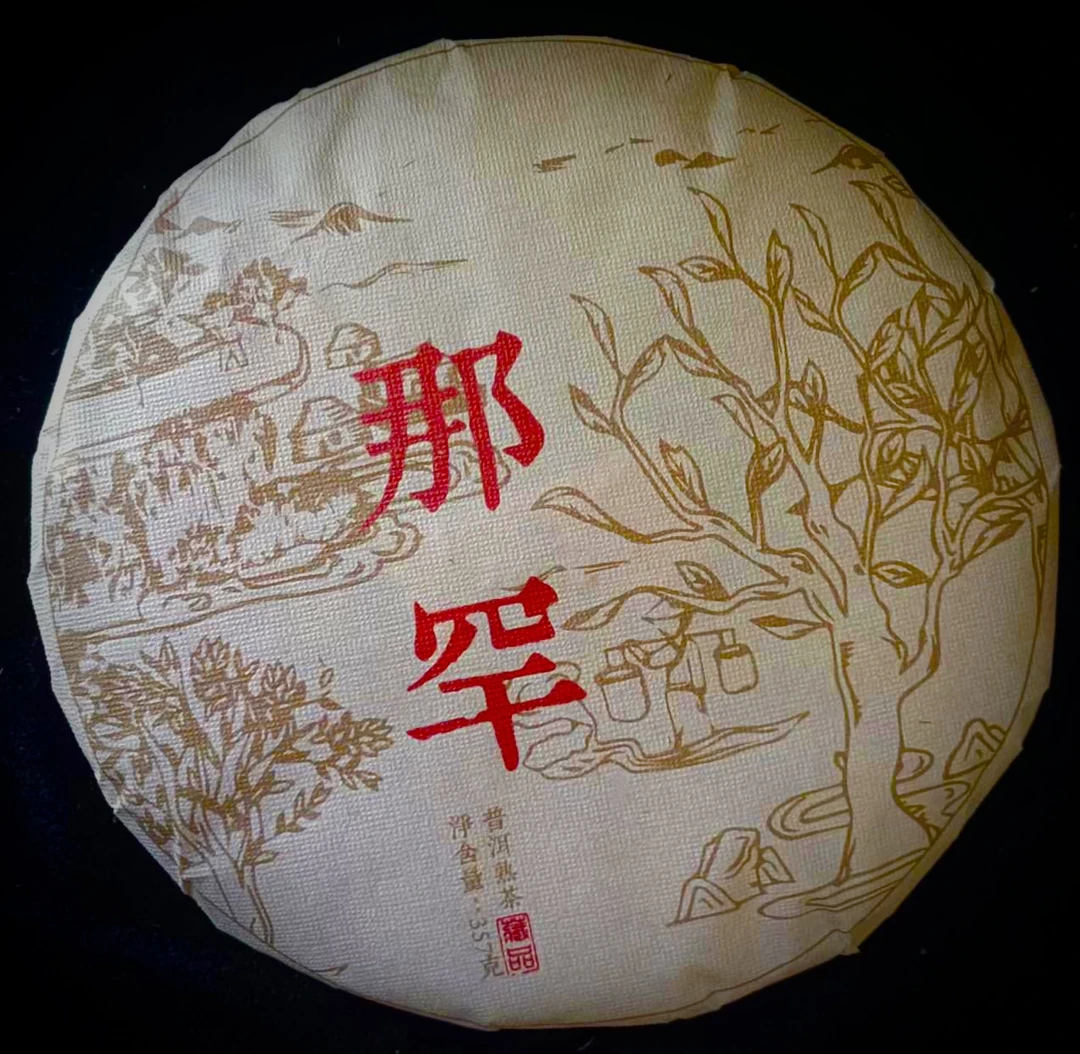 那罕
普洱熟茶
藏品
淨含量:357克